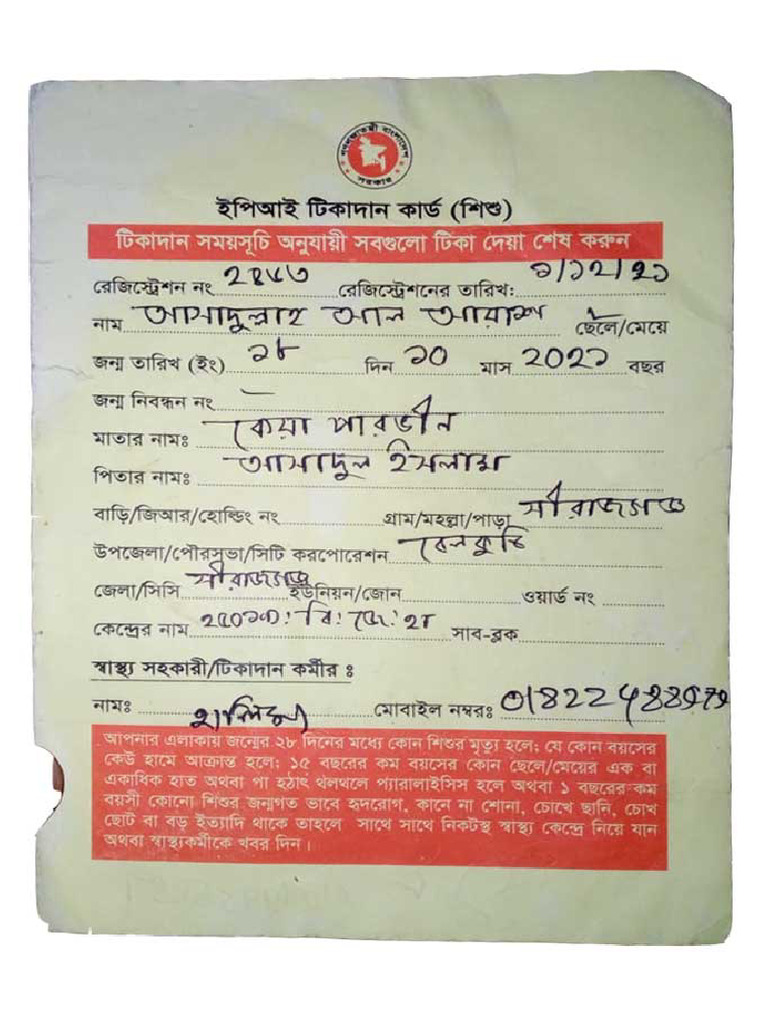 গণপ্রজাতন্ত্রী বাংলাদেশ সরকার
ইপিআই টিকাদান কার্ড (শিশু)
টিকাদান সময়সূচি অনুযায়ী সবগুলো টিকা দেয়া শেষ করুন
রেজিস্ট্রেশন নং রেজিস্ট্রেশনের তারিখ: ১/১২/২১
নাম আসাদুল্লাহ আল আরাশ ছেলে/মেয়ে
জন্ম তারিখ (ইং) ১৮ দিন ১০ মাস ২০২১ বছর
জন্ম নিবন্ধন নং
মাতার নামঃ কেয়া পারভীন
পিতার নামঃ আসাদুল ইসলাম
বাড়ি/জিআর/হোল্ডিং নং গ্রাম/মহল্লা/পাড়া সীরাজগঞ্জ
উপজেলা/পৌরসভা/সিটি করপোরেশন বেলকুচি
জেলা/সিসি সীরাজগঞ্জ ইউনিয়ন/জোন ওয়ার্ড নং
কেন্দ্রের নাম সাব-ব্লক
স্বাস্থ্য সহকারী/টিকাদান কর্মীর ঃ
নামঃ হালিমা মোবাইল নম্বরঃ
আপনার এলাকায় জন্মের ২৮ দিনের মধ্যে কোন শিশুর মৃত্যু হলে; যে কোন বয়সের
কেউ হামে আক্রান্ত হলে; ১৫ বছরের কম বয়সের কোন ছেলে/মেয়ের এক বা
একাধিক হাত অথবা পা হঠাৎ থলথলে প্যারালাইসিস হলে অথবা ১ বছরের কম
বয়সী কোনো শিশুর জন্মগত ভাবে হৃদরোগ, কানে না শোনা, চোখে ছানি, চোখ
ছোট বা বড় ইত্যাদি থাকে তাহলে সাথে সাথে নিকটস্থ স্বাস্থ্য কেন্দ্রে নিয়ে যান
অথবা স্বাস্থ্যকর্মীকে খবর দিন।